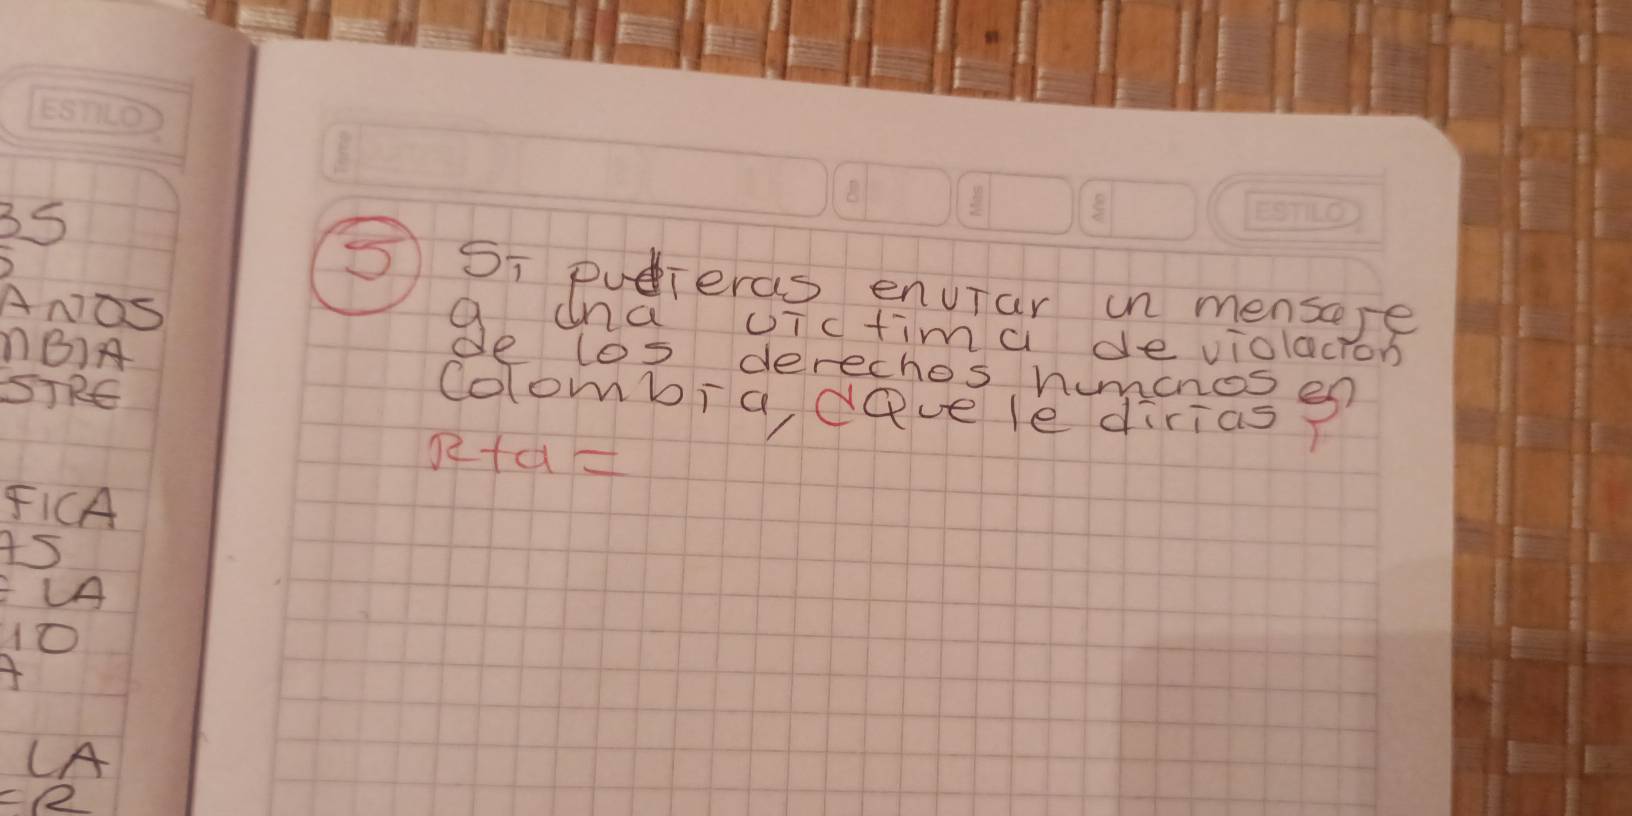 ESTILO
BS
ANOS
MBIA
STRE
FICA
AS
LA
IO
A
LA
ER
Tema
Día
Mes
Año
ESTILO
5 Si pudieras enviar un mensaje
a una victima de violacion
de los derechos humanos en
Colombia, ¿Que le dirias?
R+a =